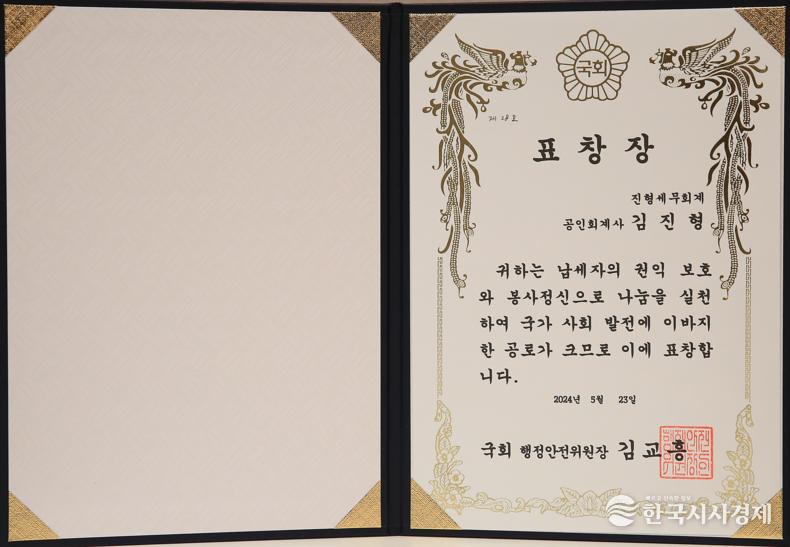 국회
제 28 호
표창장
진형세무회계
공인회계사 김진형
귀하는 납세자의 권익 보호
와 봉사정신으로 나눔을 실천
하여 국가 사회 발전에 이바지
한 공로가 크므로 이에 표창합
니다.
2024년 5월 23일
국회 행정안전위원장 김교흥
빠르고 신속한 정보
한국시사경제